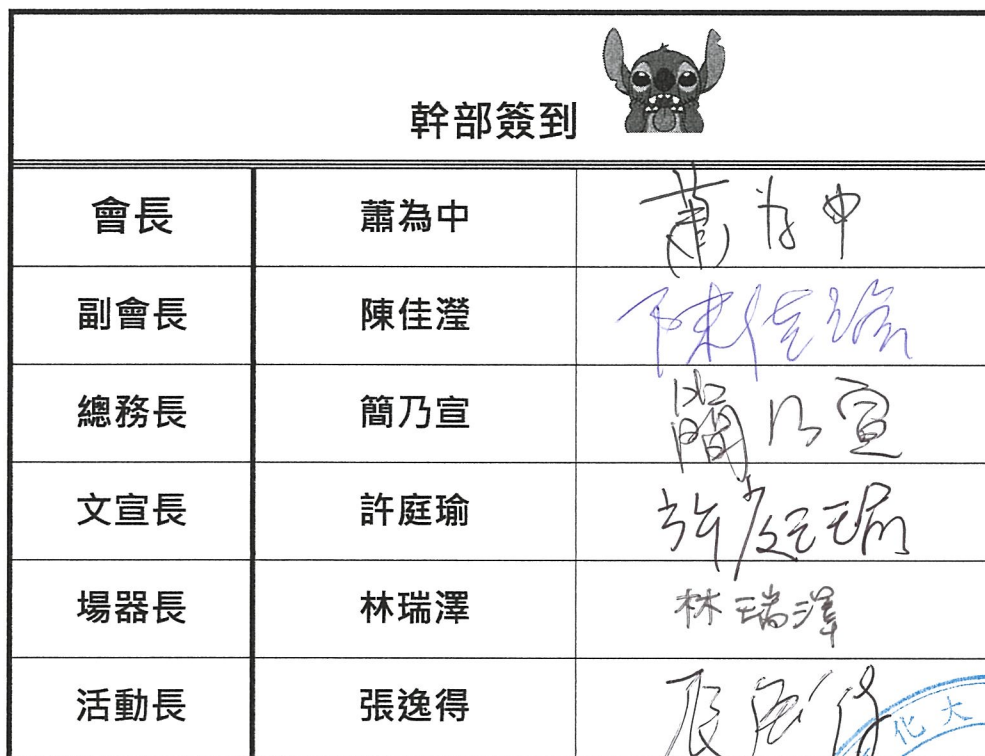 幹部簽到
會長 蕭為中 蕭为中
副會長 陳佳瀅 陳佳瀅
總務長 簡乃宣 簡乃宣
文宣長 許庭瑜 許庭瑜
場器長 林瑞澤 林瑞澤
活動長 張逸得 張逸得
化大